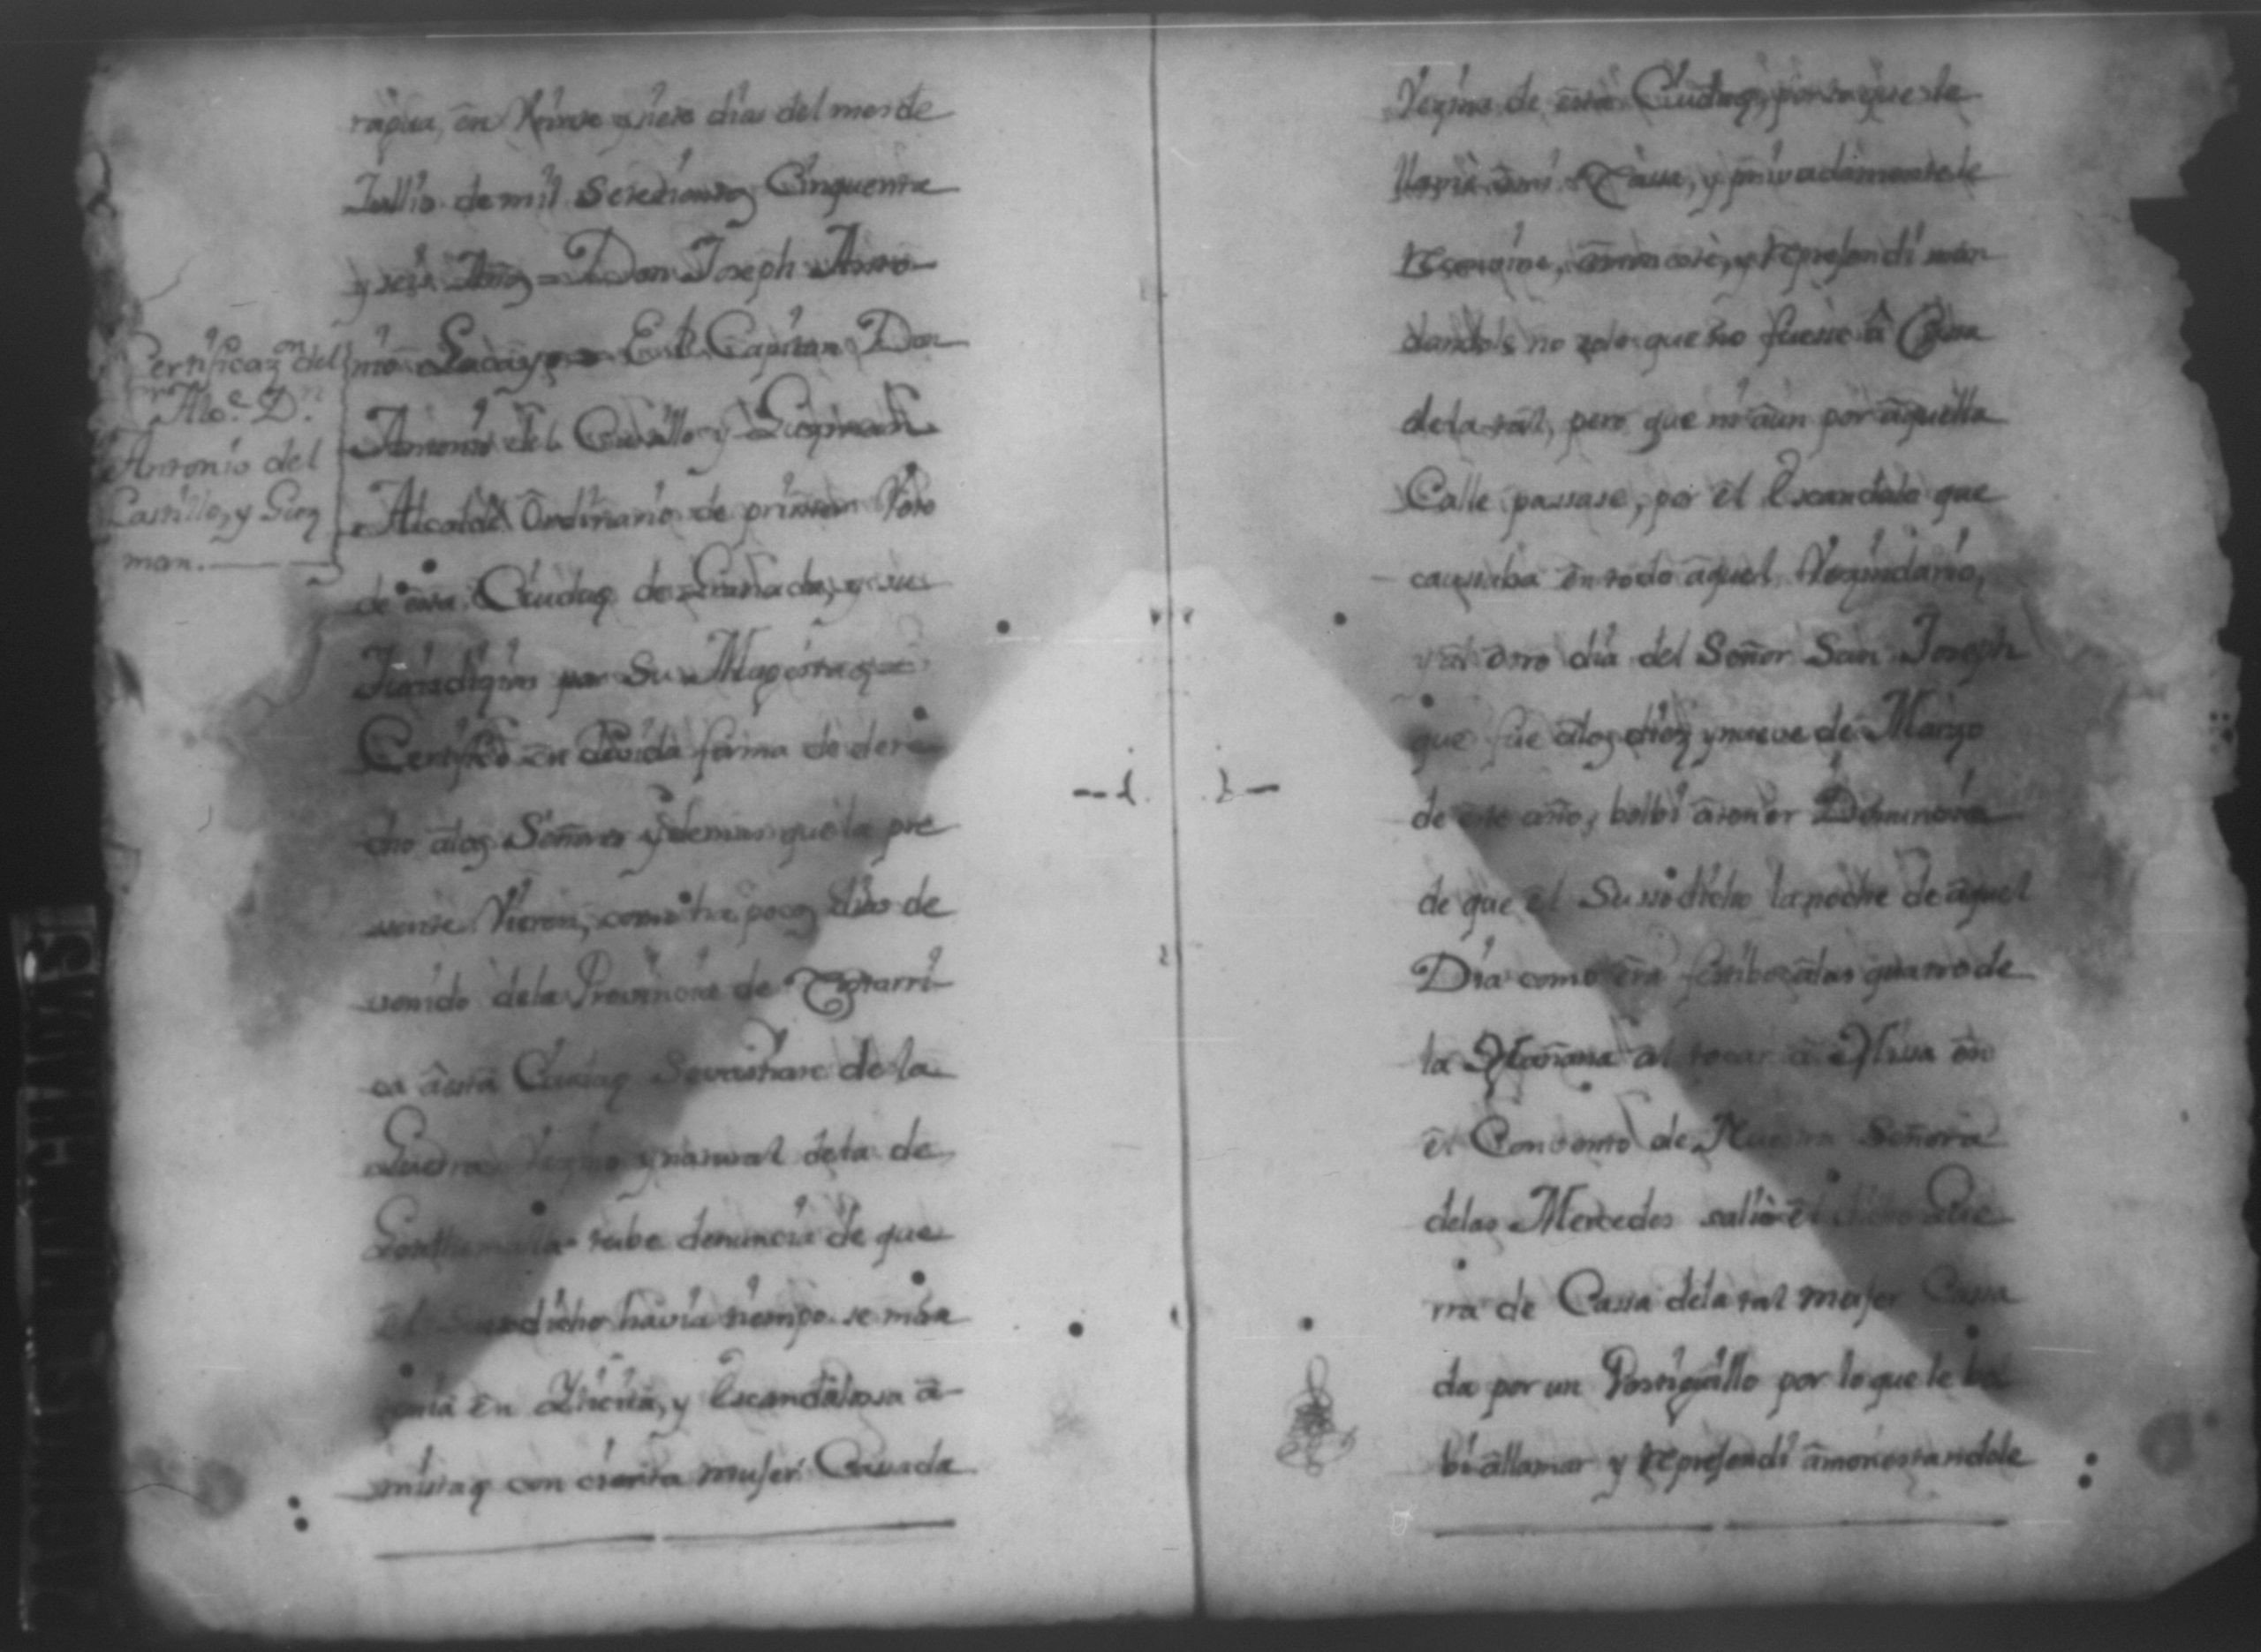 Certificaz.on del
Alc.e D.n
Antonio del
Castillo, y Guz
man.
ragua, en Veinte y siete dias del mes de
Jullio de mil Setecientos Cinquenta
y seis Años = Don Joseph Anto
nio Lacayo = El Capitan Don
Antonio del Castillo y Guzman
Alcalde Ordinario de primer Voto
de esta Ciudad de Granada, y su
Jurisdizion por Su Magestad =
Certifico en devida forma de dere
cho a los Señores y demas que la pre
sente Vieren, como ha pocos dias de
venido de la Provincia de Costarri
ca a esta Ciudad Sevastian de la
Guerra Vezino y natural de la de
Goathemala tube denuncia de que
el Susodicho havia tiempo se man
tenia en Ylicita, y Escandalosa a
mistad con cierta muger Casada
Vezina de esta Ciudad, por lo que le
llamé a mi Casa, y privadamente le
reprehendi man
dandole no solo que no fuesse â Casa
de la tal, pero que ni aun por aquella
Calle passase, por el Escandalo que
caussaba en todo aquel Vezindario,
y al otro dia del Señor San Joseph
que fue a los diez y nueve de Marzo
de este año, bolbi a tener Denuncia
de que el Susodicho la noche de aquel
Dia como era festibo a las quatro de
la Mañana al tocar a Missa en
el Convento de Nuestra Señora
de las Mercedes salió el dicho Gue
rra de Cassa de la tal muger Cassa
da por un Postiguillo por lo que le bol
bi a llamar y reprehendi amonestandole